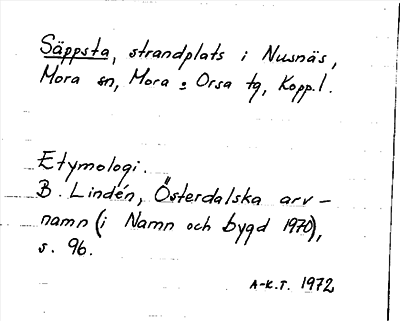 Säppsta, strandplats i Nusnäs,
Mora sn, Mora o Orsa tg, Kopp.l.
Etymologi.
B. Lindén, Österdalska arv-
namn (i Namn och bygd 1970),
s. 96.
A-K.T. 1972